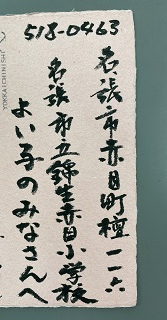 518-0463
名張市赤目町檀一一六
名張市立錦生赤目小学校
よい子のみなさんへ
YOKKAICHINISHI